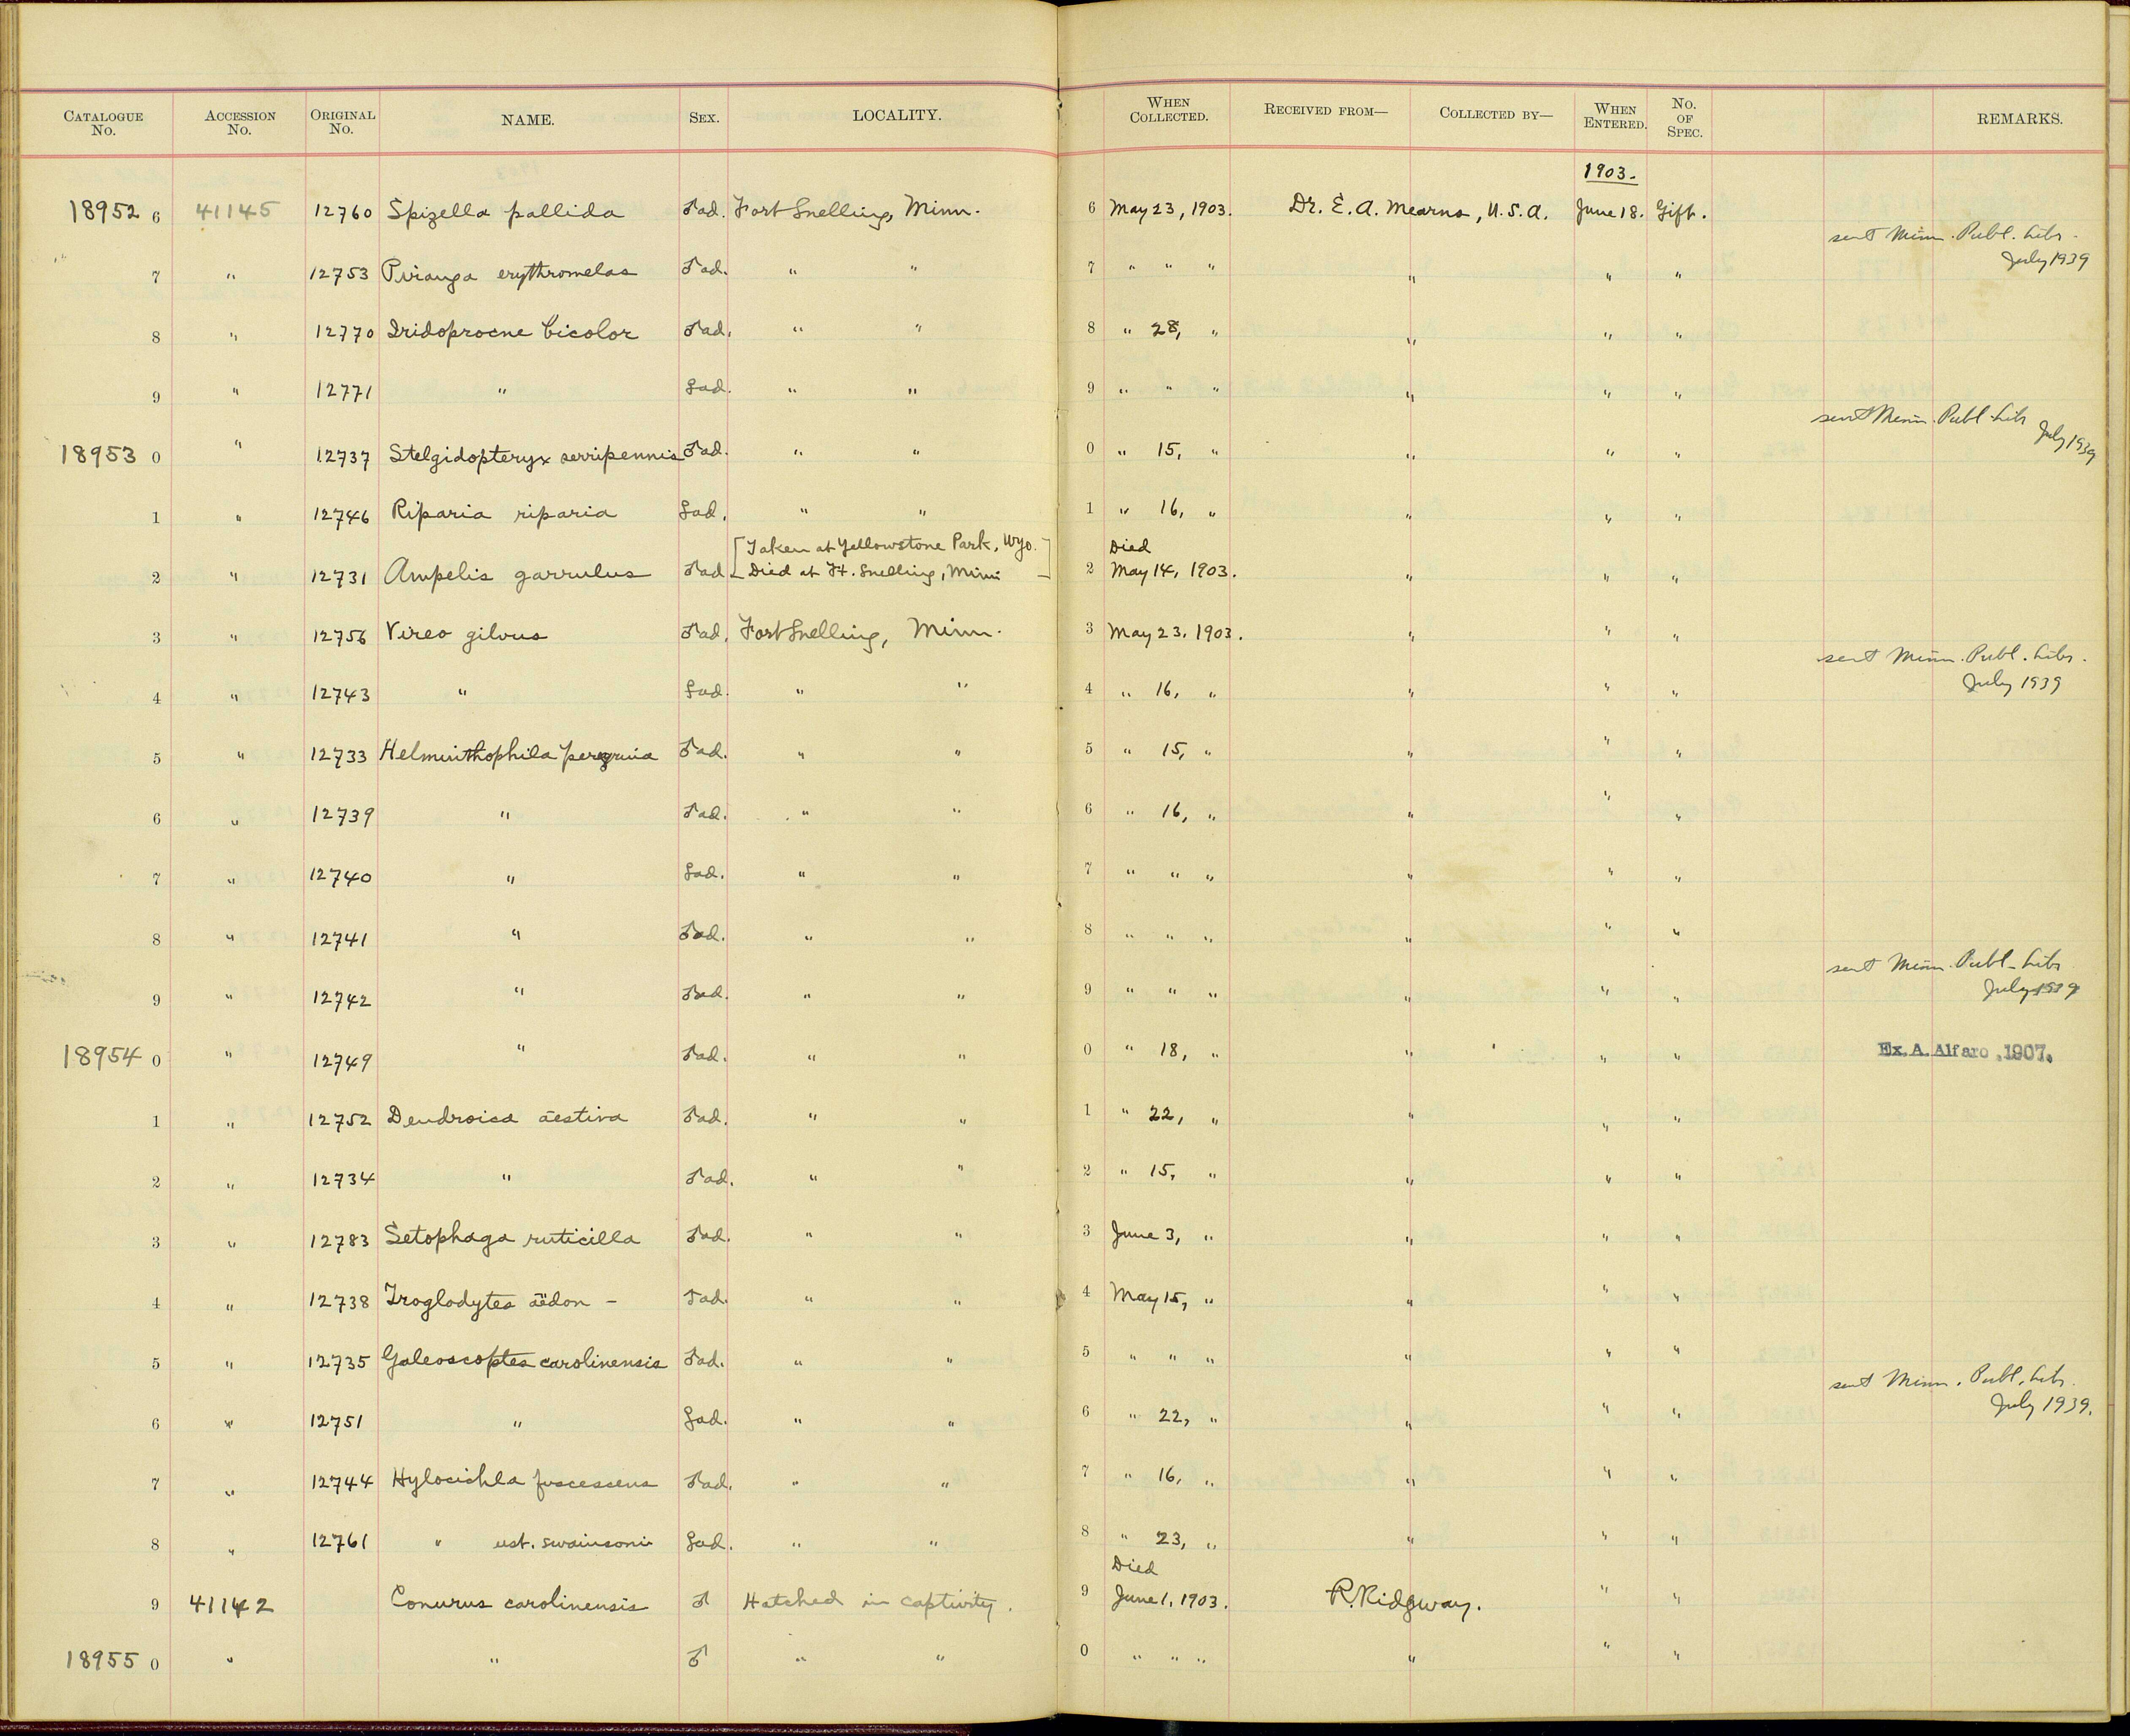 CATALOGUE No. ACCESSION No. ORIGINAL No. NAME. SEX. LOCALITY. WHEN COLLECTED. RECEIVED FROM— COLLECTED BY— WHEN ENTERED. No. OF SPEC. REMARKS.
1903.
18952 6 41145 12760 Spizella pallida ♂ad. Fort Snelling, Minn. 6 May 23, 1903. Dr. E. A. Mearns, U.S.A. June 18. Gift.
sent Minn. Publ. Libr.
July 1939
7 " 12753 Piranga erythromelas ♂ad. " " 7 " " " " " "
8 " 12770 Iridoprocne bicolor ♂ad. " " 8 " 28, " " " "
9 " 12771 " ♀ad. " " 9 " " " " " "
sent Minn. Publ. Libr July 1939
18953 0 " 12737 Stelgidopteryx serripennis ♂ad. " " 0 " 15, " " " "
1 " 12746 Riparia riparia ♀ad. " " 1 " 16, " " " "
[Taken at Yellowstone Park, Wyo. Died
2 " 12731 Ampelis garrulus ♂ad. Died at Ft. Snelling, Minn] 2 May 14, 1903. " " "
3 " 12756 Vireo gilvus ♂ad. Fort Snelling, Minn. 3 May 23, 1903. " " "
sent Minn. Publ. Libr.
July 1939
4 " 12743 " ♀ad. " " 4 " 16, " " " "
5 " 12733 Helminthophila peregrina ♂ad. " " 5 " 15, " " " "
6 " 12739 " ♂ad. " " 6 " 16, " " " "
7 " 12740 " ♀ad. " " 7 " " " " " "
8 " 12741 " ♂ad. " " 8 " " " " " "
sent Minn. Publ. Libr
July 1939
9 " 12742 " ♂ad. " " 9 " " " " " "
18954 0 " 12749 " ♂ad. " " 0 " 18, " " " " Ex. A. Alfaro, 1907.
1 " 12752 Dendroica aestiva ♂ad. " " 1 " 22, " " " "
2 " 12734 " ♂ad. " " 2 " 15, " " " "
3 " 12783 Setophaga ruticilla ♂ad. " " 3 June 3, " " " "
4 " 12738 Troglodytes aëdon – ♂ad. " " 4 May 15, " " " "
5 " 12735 Galeoscoptes carolinensis ♂ad. " " 5 " " " " " "
sent Minn. Publ. Libr.
July 1939.
6 " 12751 " ♀ad. " " 6 " 22, " " " "
7 " 12744 Hylocichla fuscescens ♂ad. " " 7 " 16, " " " "
8 " 12761 " ust. swainsonii ♀ad. " " 8 " 23, " " " "
Died
9 41142 Conurus carolinensis ♂ Hatched in captivity. 9 June 1, 1903. R. Ridgway. " "
18955 0 " " ♂ " " 0 " " " " " "